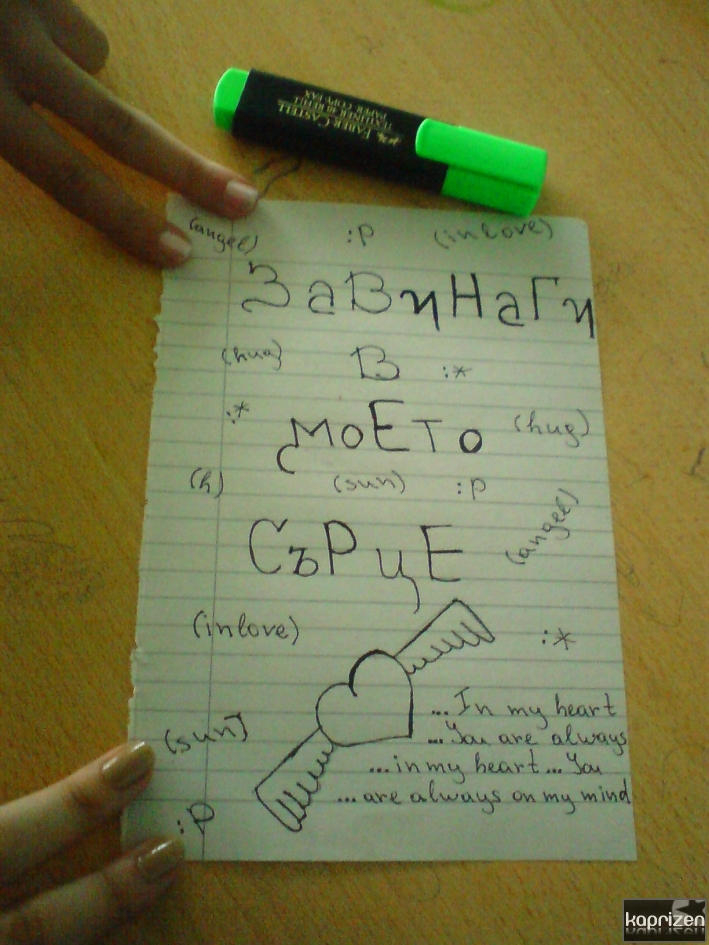 FABER-CASTELL
TEXTLINER 48 REFILL
PAPER COPY FAX
(angel) :P (inlove)
ЗаВиНаГи
(hug) В :*
:* моЕто (hug)
(h) (sun) :P
СърцЕ (angel)
(inlove) :*
... In my heart
(sun) ... You are always
... in my heart ... You
:P ... are always on my mind
kaprizen